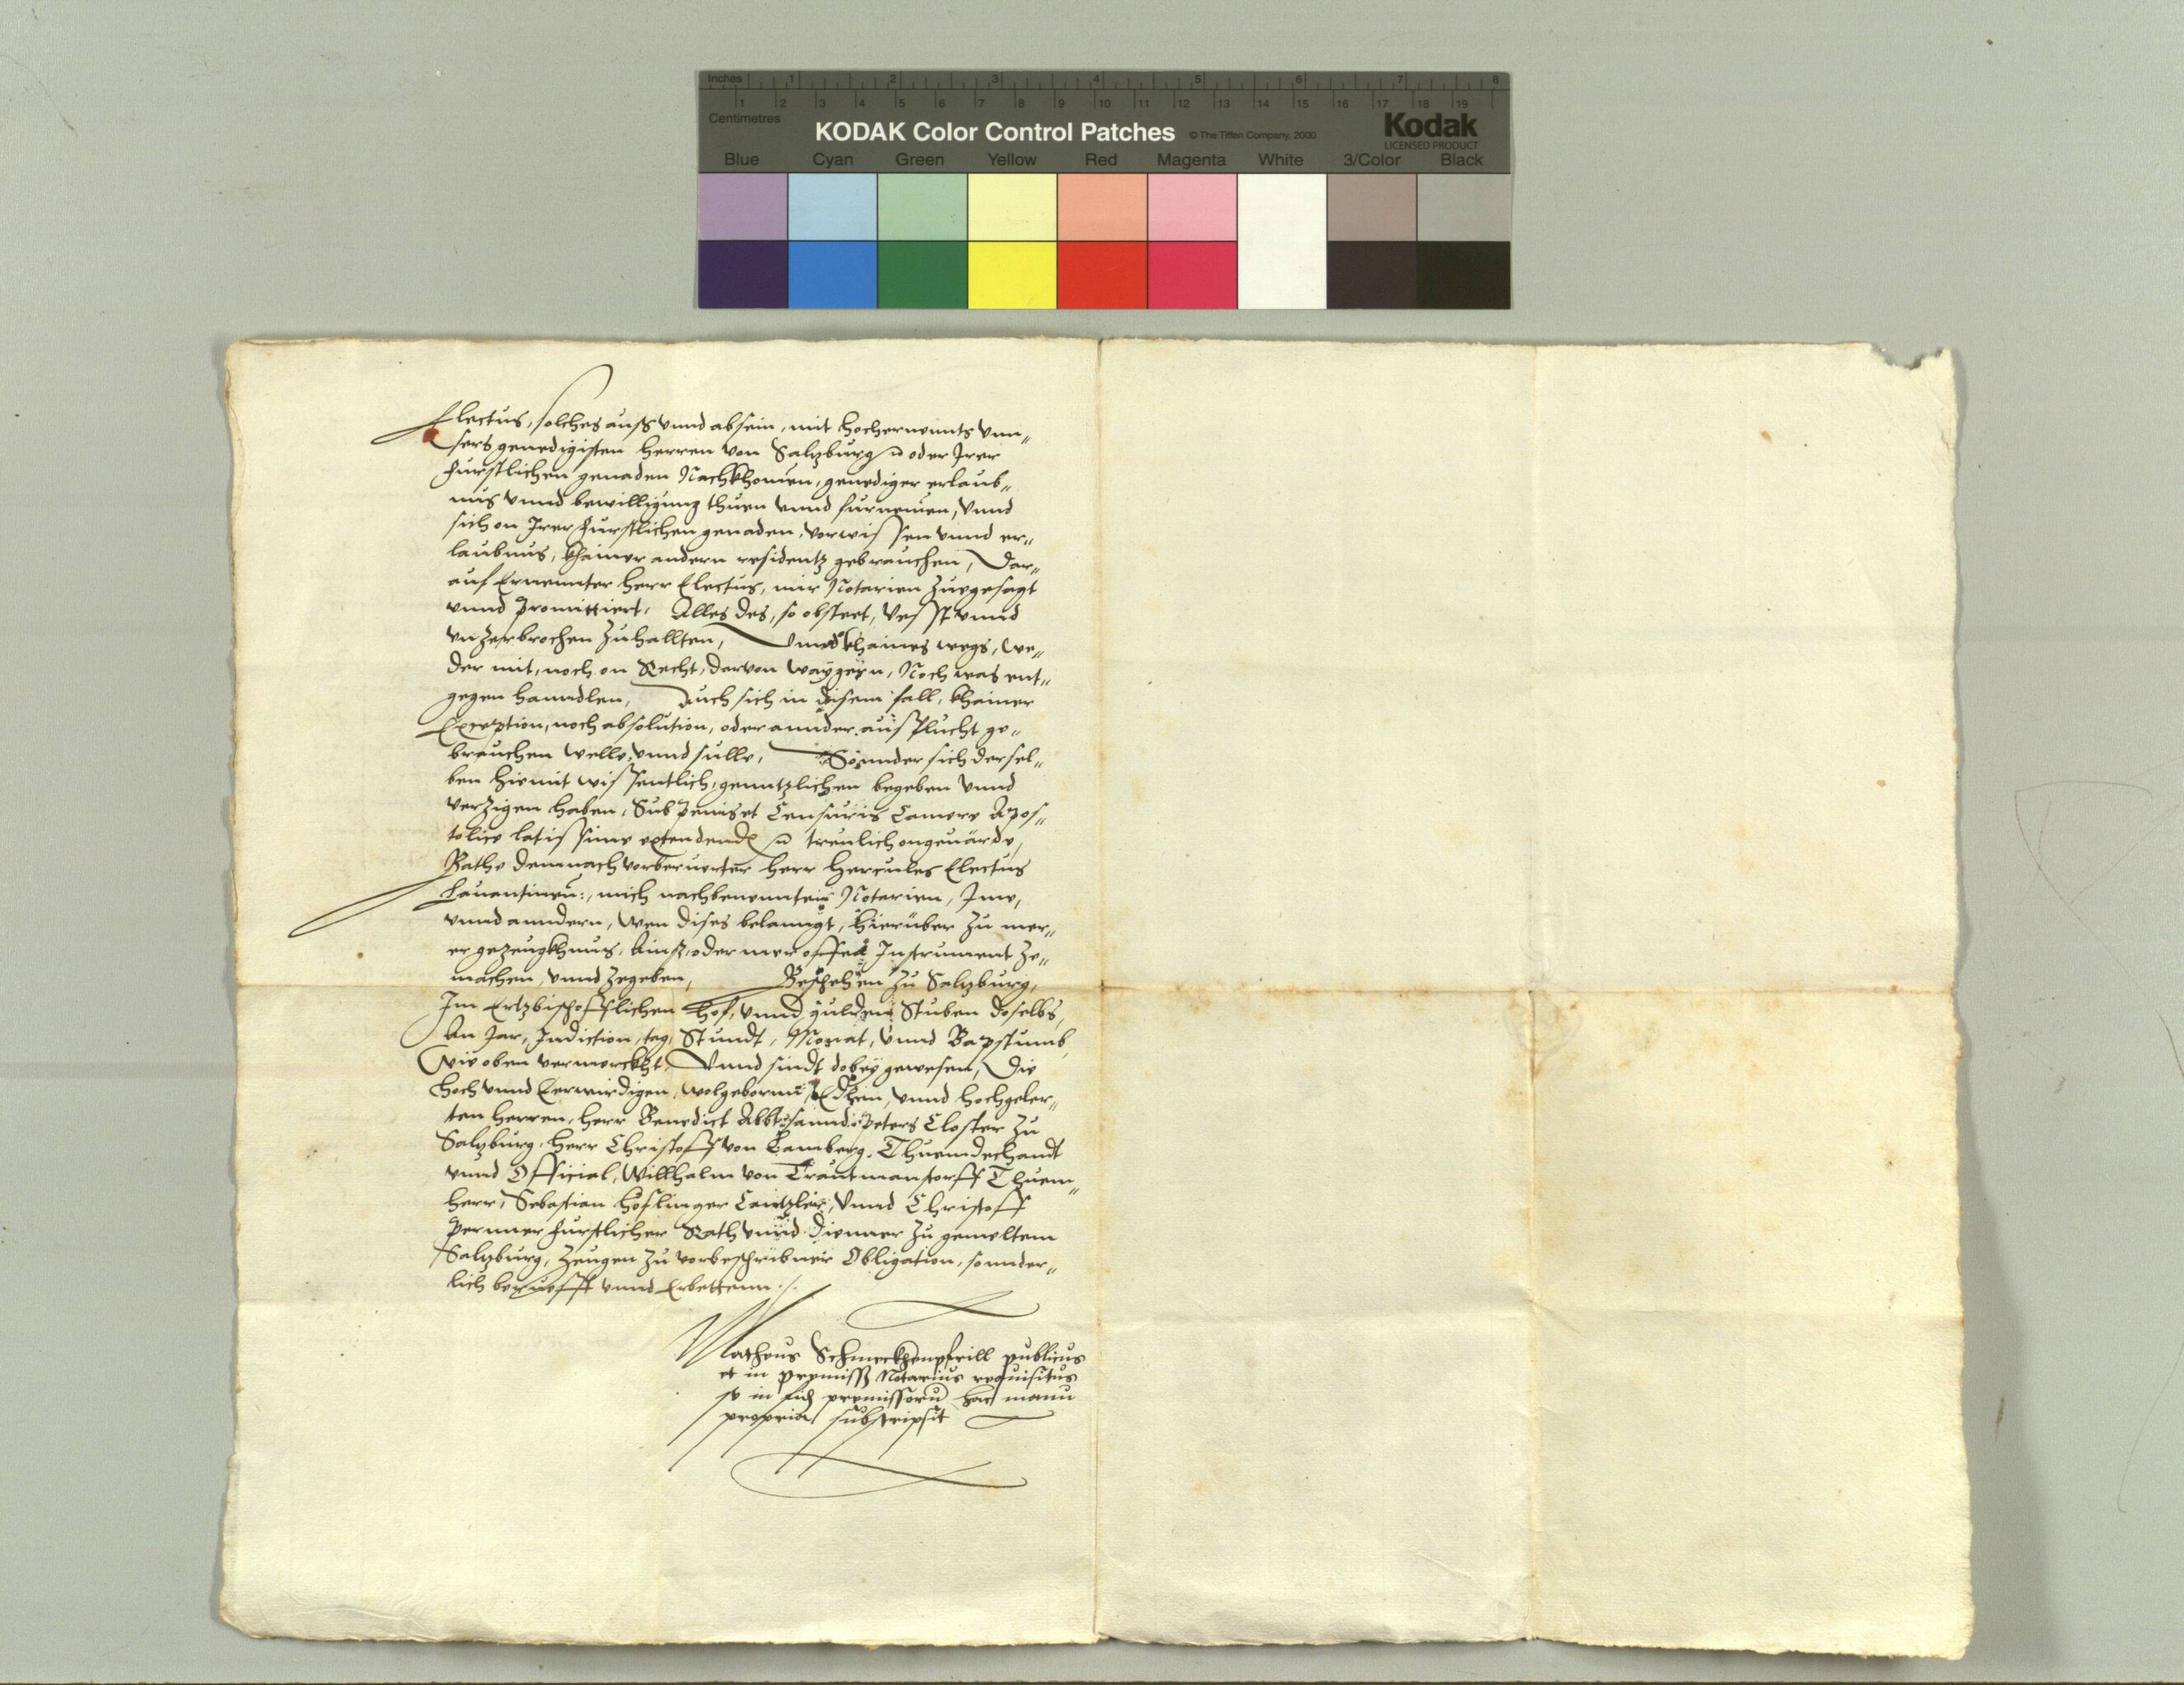 Inches 1 2 3 4 5 6 7 8
1 2 3 4 5 6 7 8 9 10 11 12 13 14 15 16 17 18 19
Centimetres
KODAK Color Control Patches © The Tiffen Company, 2000 Kodak
LICENSED PRODUCT
Blue Cyan Green Yellow Red Magenta White 3/Color Black
Electus, solches auss vnnd absein, mit hochernennts vnn„
sers genedigisten herren von Saltzburg oder Irer
fürstlichen genaden Nachkhomen, genediger erlaub„
nus vnnd bewilligung thuen vnnd furnemen, Vnnd
sich on Irer fürstlichen genaden, vorwissen vnnd er„
laubnus, khainer andern residentz gebrauchen, Dar„
auf Ernennter herr Electus, mir Notarien zuegesagt
vnnd promittiert, Alles des, so obsteet, vesst vnnd
vnzerbrochen zuhallten, Vnnd khaines wegs, we„
der mit, noch on Recht, daruon waygern, Noch was ent„
gegen hanndlen, Auch sich in disem fall, khainer
Exception, noch absolution, oder annder ausflucht ge„
brauchen welle, vnnd sulle, Sonnder sich dersel„
ben hiemit wissentlich, genntzlichen begeben vnnd
verzigen haben, Sub penis et Censuris Camere Apos„
tolice latissime extendend treulich ongeuärde,
Bathe demnach vorberuerter herr Hercules Electus
Lauantinen:, mich nachbenennten Notarien, Ime,
vnnd anndern, wen dises belanngt, hierüber zu mer„
er gezeugkhnus, Ains, oder mer offen Instrument ze„
machen, vnnd zegeben, Beschehen zu Saltzburg,
Im Ertzbischoflichen hof, vnnd gulden Stuben doselbs,
An Jar, Indiction, tag, Stundt, Monat, vnnd Bapstumb,
wie oben vermerckht, Vnnd sindt dobey gewesen, Die
hoch vnnd Eerwirdigen, wolgebornn, Edlen, vnnd hochgeler„
ten herren, herr Benedict Abbt sannd Peters Closter zu
Saltzburg, herr Christoff von Lamberg, Thuemdechandt
vnnd Official, Willhalm von Trautmanstorff Thuem„
herr, Sebastian Höflinger Canntzler, vnnd Christoff
Perner fürstlicher Rath vnnd Dienner zu gemeltem
Saltzburg, Zeugen zu vorbeschribner Obligation, sonnder„
lich berüefft vnnd Erbettenn
Matheus Schmeckhenpfrill publicus
et in premiss Notarius requisitus
premissorū hac manu
propria subscripsit